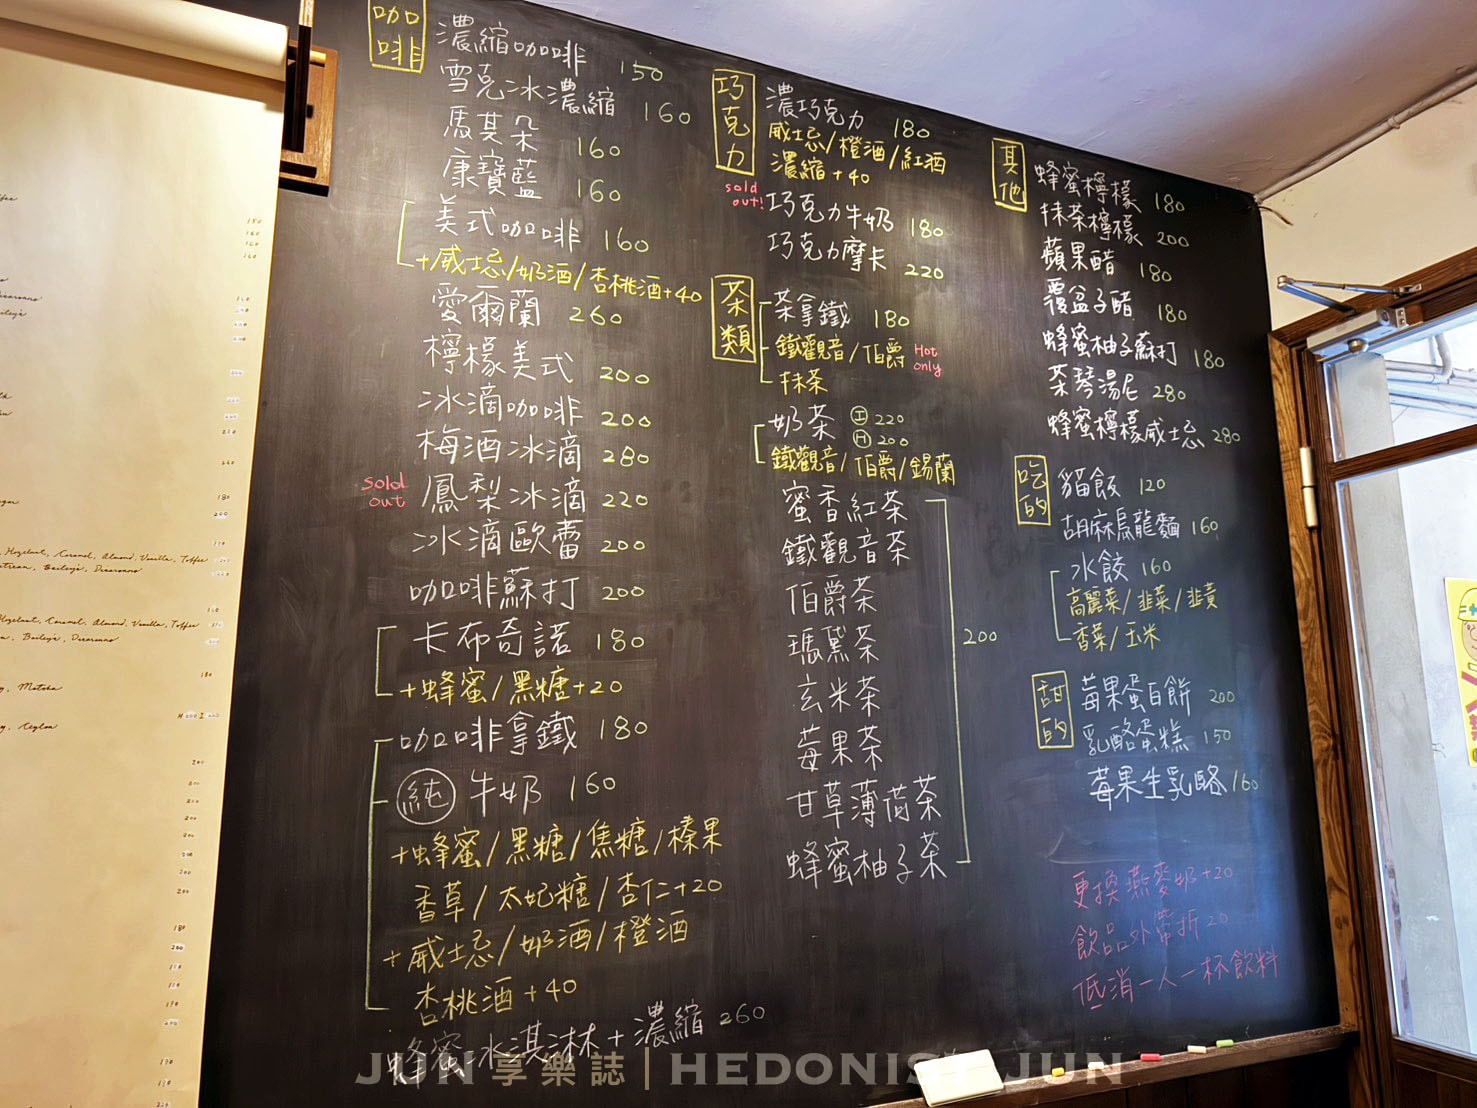 咖啡
濃縮咖啡 150
雪克冰濃縮 160
馬其朵 160
康寶藍 160
美式咖啡 160
+威士忌/奶酒/杏桃酒+40
愛爾蘭 260
檸檬美式 200
冰滴咖啡 200
梅酒冰滴 280
sold out 鳳梨冰滴 220
冰滴歐蕾 200
咖啡蘇打 200
卡布奇諾 180
+蜂蜜/黑糖+20
咖啡拿鐵 180
純 牛奶 160
+蜂蜜/黑糖/焦糖/榛果
香草/太妃糖/杏仁+20
+威士忌/奶酒/橙酒
杏桃酒+40
蜂蜜冰淇淋+濃縮 260
巧克力
濃巧克力 180
威士忌/橙酒/紅酒
濃縮+40
sold out! 巧克力牛奶 180
巧克力摩卡 220
茶類
茶拿鐵 180
鐵觀音/伯爵 Hot only
抹茶
奶茶 I 220
H 200
鐵觀音/伯爵/錫蘭
蜜香紅茶
鐵觀音茶
伯爵茶
瑪黛茶
玄米茶
莓果茶
甘草薄荷茶
蜂蜜柚子茶
200
其他
蜂蜜檸檬 180
抹茶檸檬 200
蘋果醋 180
覆盆子醋 180
蜂蜜柚子蘇打 180
茶琴湯尼 280
蜂蜜檸檬威士忌 280
吃的
貓飯 120
胡麻烏龍麵 160
水餃 160
高麗菜/韭菜/韭黃
香菜/玉米
甜的
莓果蛋白餅 200
乳酪蛋糕 150
莓果生乳酪 160
更換燕麥奶+20
飲品外帶折20
低消一人一杯飲料
Hazelnut, Caramel, Almond, Vanilla, Toffee
Bailey's, Disaronno
Hazelnut, Caramel, Almond, Vanilla, Toffee
Bailey's, Disaronno
Matcha
Ceylon
JUN享樂誌|HEDONIST JUN